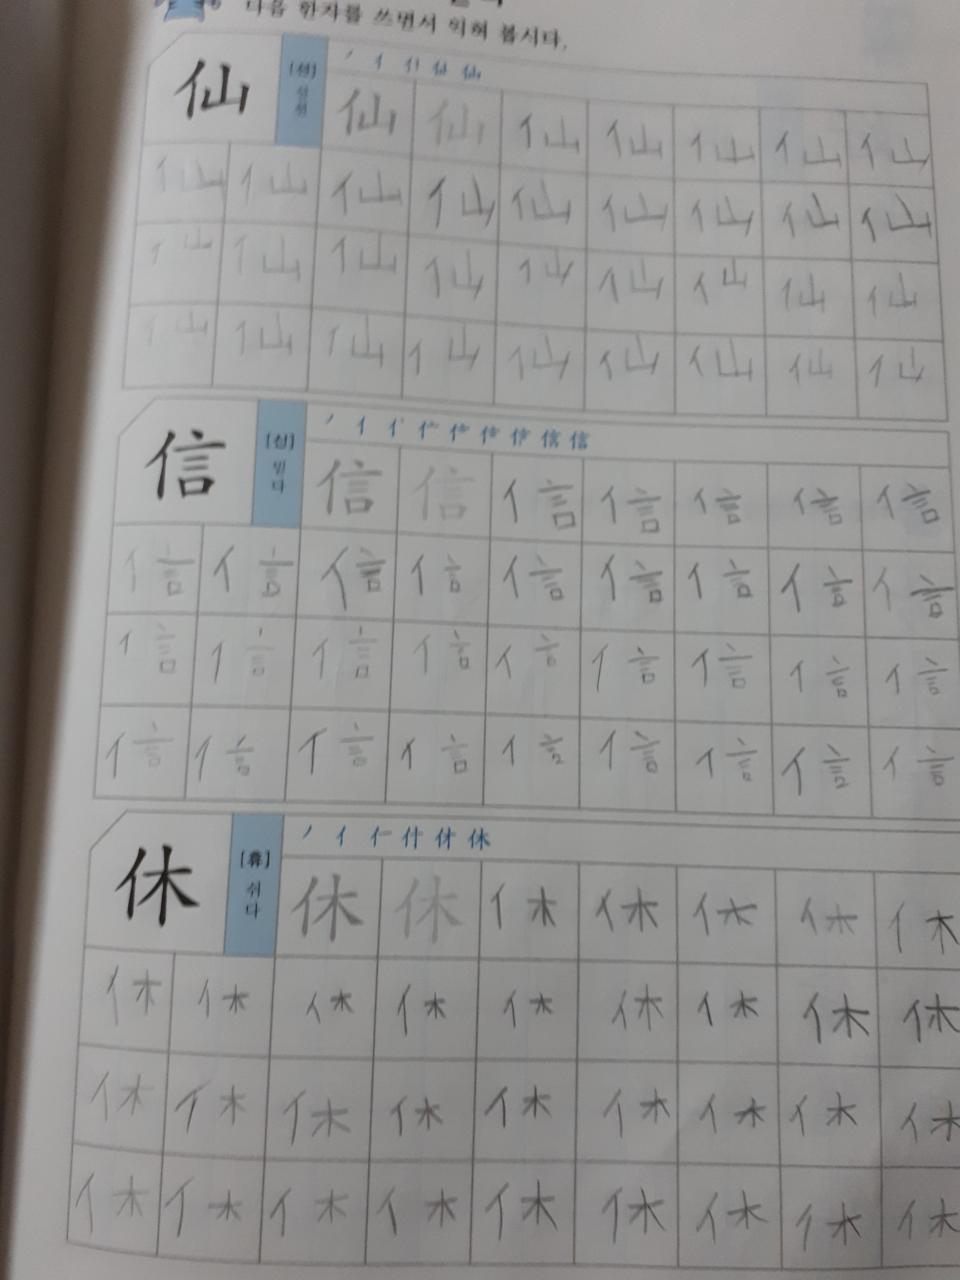 다음 한자를 쓰면서 익혀 봅시다.
仙 [선] 신선
丿 亻 仙 仙
仙 仙 仙 仙 仙 仙 仙
仙 仙 仙 仙 仙 仙 仙 仙 仙
仙 仙 仙 仙 仙 仙 仙 仙 仙
仙 仙 仙 仙 仙 仙 仙 仙 仙
信 [신] 믿다
丿 亻 信 信
信 信 信 信 信 信 信
信 信 信 信 信 信 信 信 信
信 信 信 信 信 信 信 信 信
信 信 信 信 信 信 信 信 信
休 [휴] 쉬다
丿 亻 仁 什 休 休
休 休 休 休 休 休 休
休 休 休 休 休 休 休 休 休
休 休 休 休 休 休 休 休 休
休 休 休 休 休 休 休 休 休